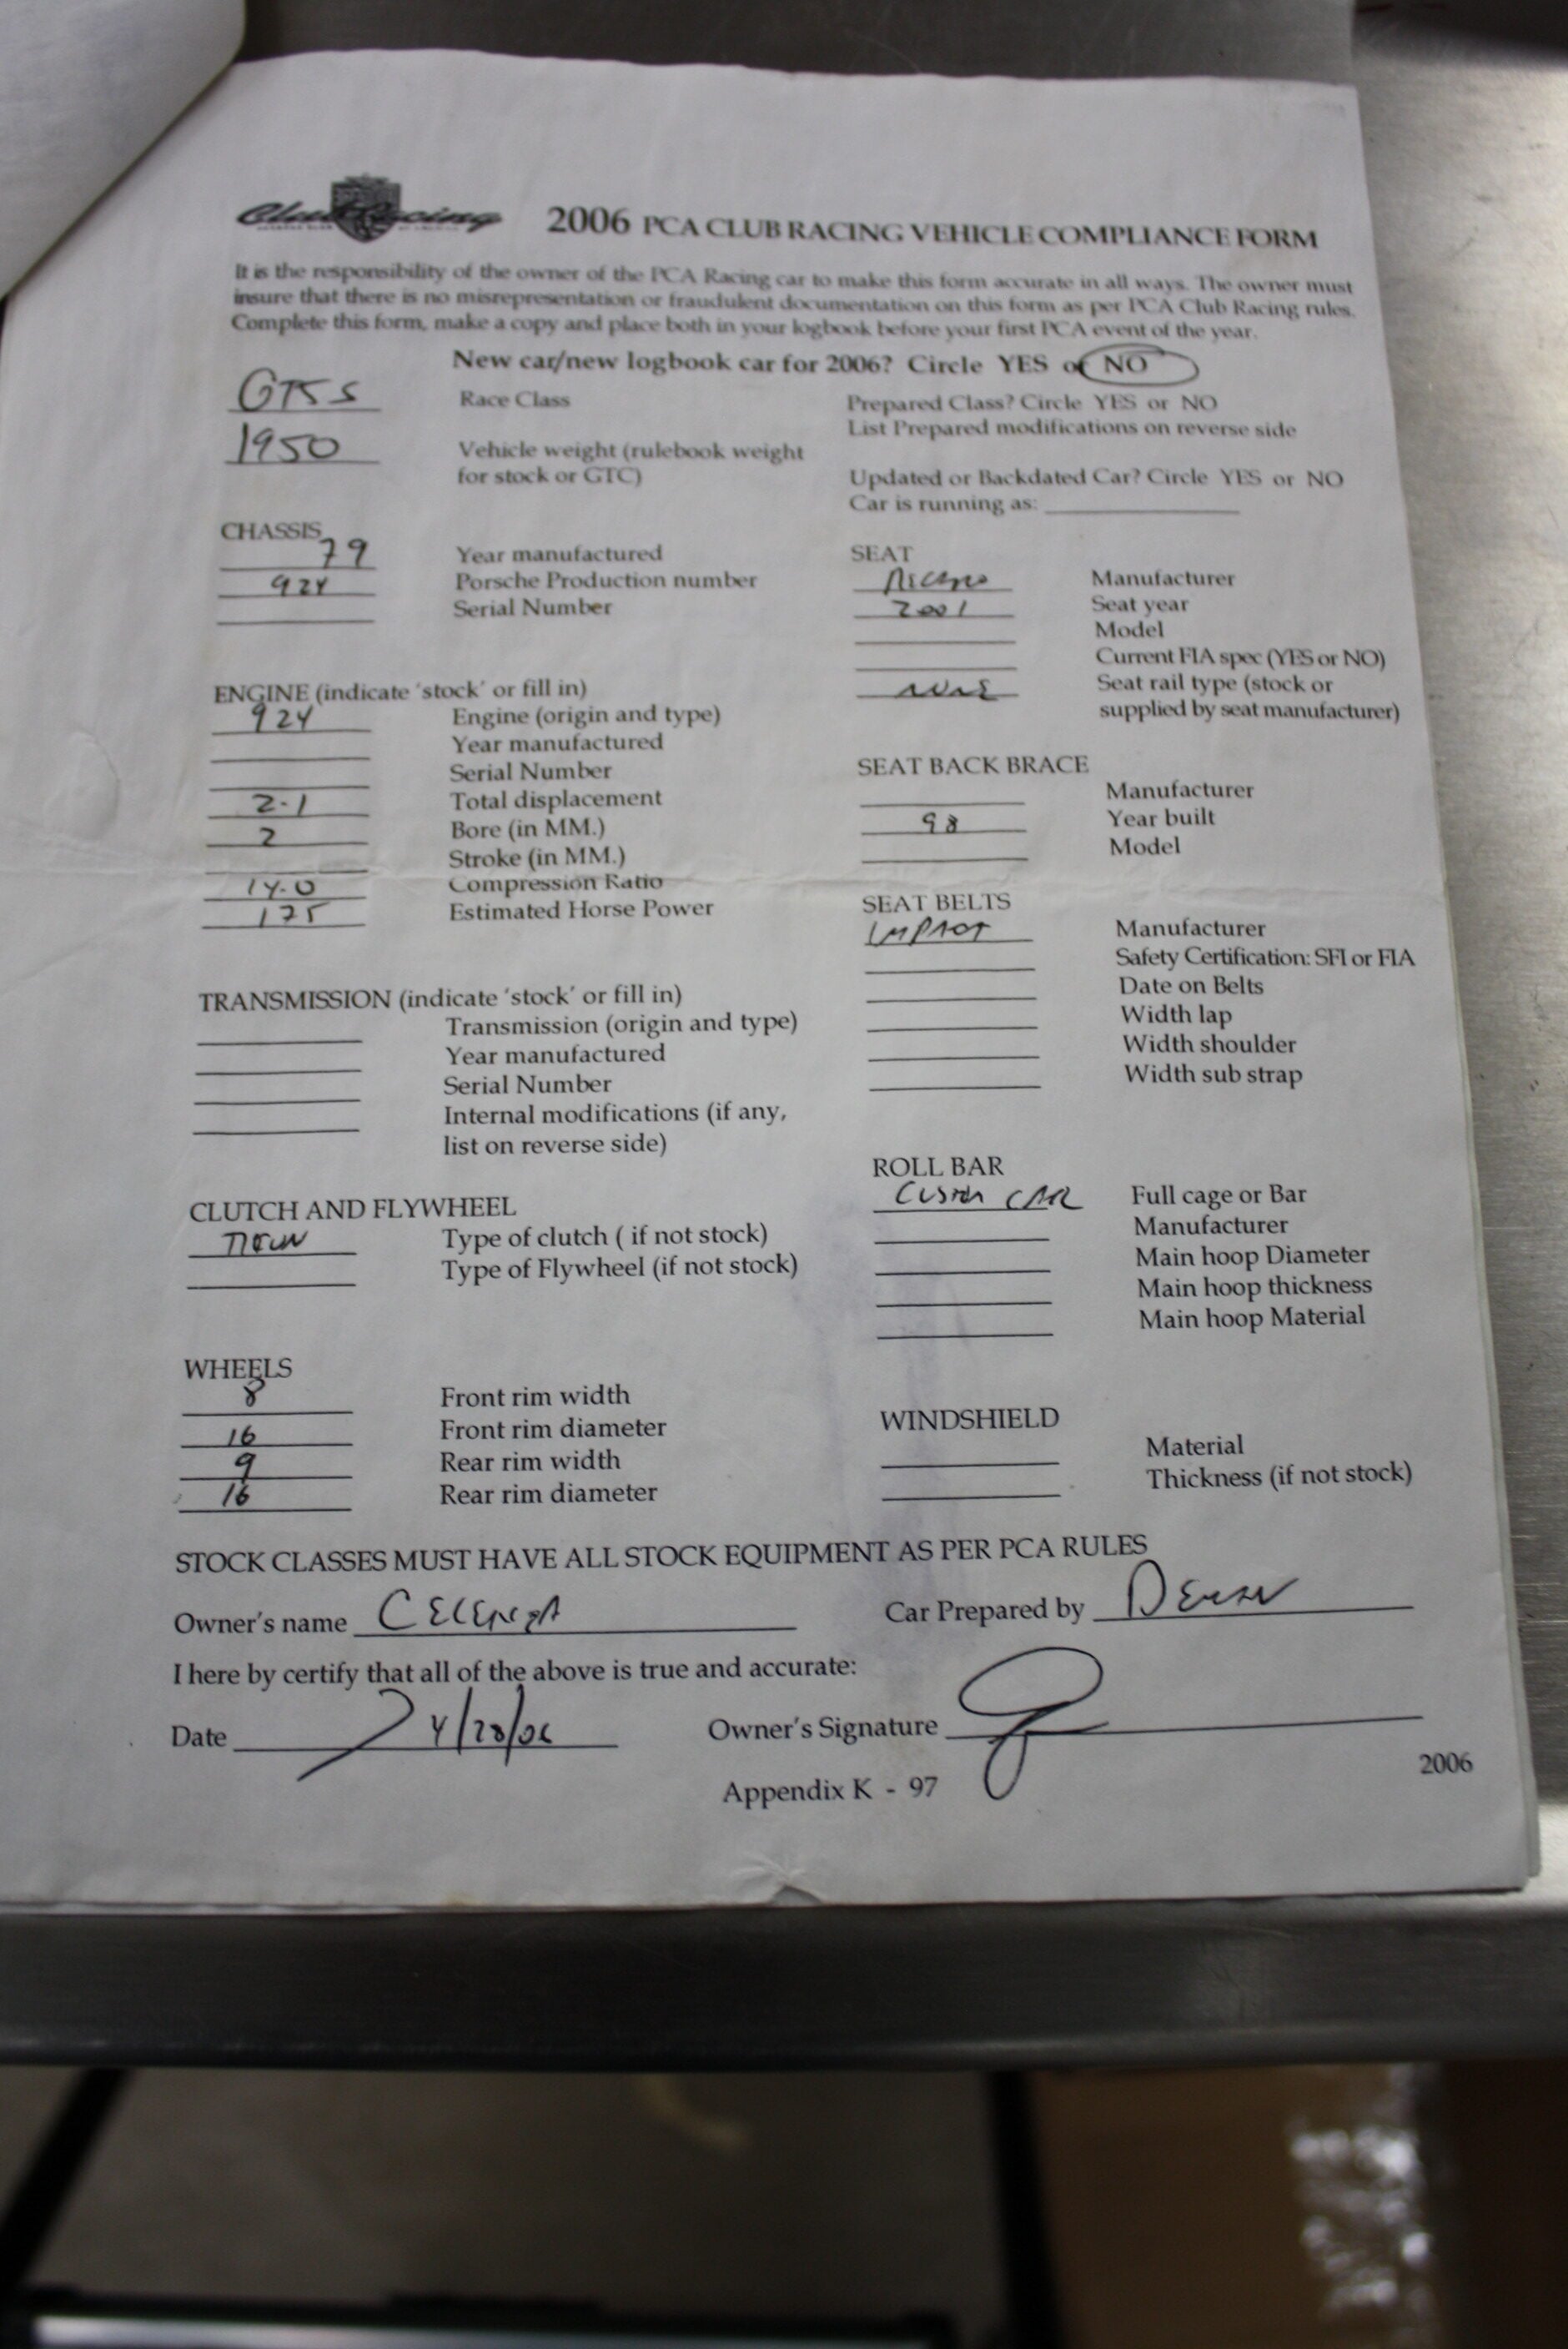 Club Racing
2006 PCA CLUB RACING VEHICLE COMPLIANCE FORM
It is the responsibility of the owner of the PCA Racing car to make this form accurate in all ways. The owner must
insure that there is no misrepresentation or fraudulent documentation on this form as per PCA Club Racing rules.
Complete this form, make a copy and place both in your logbook before your first PCA event of the year.
New car/new logbook car for 2006? Circle YES or NO
Race Class
1950 Vehicle weight (rulebook weight
for stock or GTC)
Prepared Class? Circle YES or NO
List Prepared modifications on reverse side
Updated or Backdated Car? Circle YES or NO
Car is running as:
CHASSIS
79 Year manufactured
924 Porsche Production number
Serial Number
ENGINE (indicate 'stock' or fill in)
924 Engine (origin and type)
Year manufactured
Serial Number
2.1 Total displacement
2 Bore (in MM.)
Stroke (in MM.)
14.0 Compression Ratio
175 Estimated Horse Power
TRANSMISSION (indicate 'stock' or fill in)
Transmission (origin and type)
Year manufactured
Serial Number
Internal modifications (if any,
list on reverse side)
CLUTCH AND FLYWHEEL
Type of clutch ( if not stock)
Type of Flywheel (if not stock)
WHEELS
8 Front rim width
16 Front rim diameter
9 Rear rim width
16 Rear rim diameter
SEAT
Manufacturer
2001 Seat year
Model
Current FIA spec (YES or NO)
Seat rail type (stock or
supplied by seat manufacturer)
SEAT BACK BRACE
Manufacturer
98 Year built
Model
SEAT BELTS
IMPACT Manufacturer
Safety Certification: SFI or FIA
Date on Belts
Width lap
Width shoulder
Width sub strap
ROLL BAR
Full cage or Bar
Manufacturer
Main hoop Diameter
Main hoop thickness
Main hoop Material
WINDSHIELD
Material
Thickness (if not stock)
STOCK CLASSES MUST HAVE ALL STOCK EQUIPMENT AS PER PCA RULES
Owner's name
Car Prepared by
I here by certify that all of the above is true and accurate:
Date 4/28/06
Owner's Signature
Appendix K - 97
2006